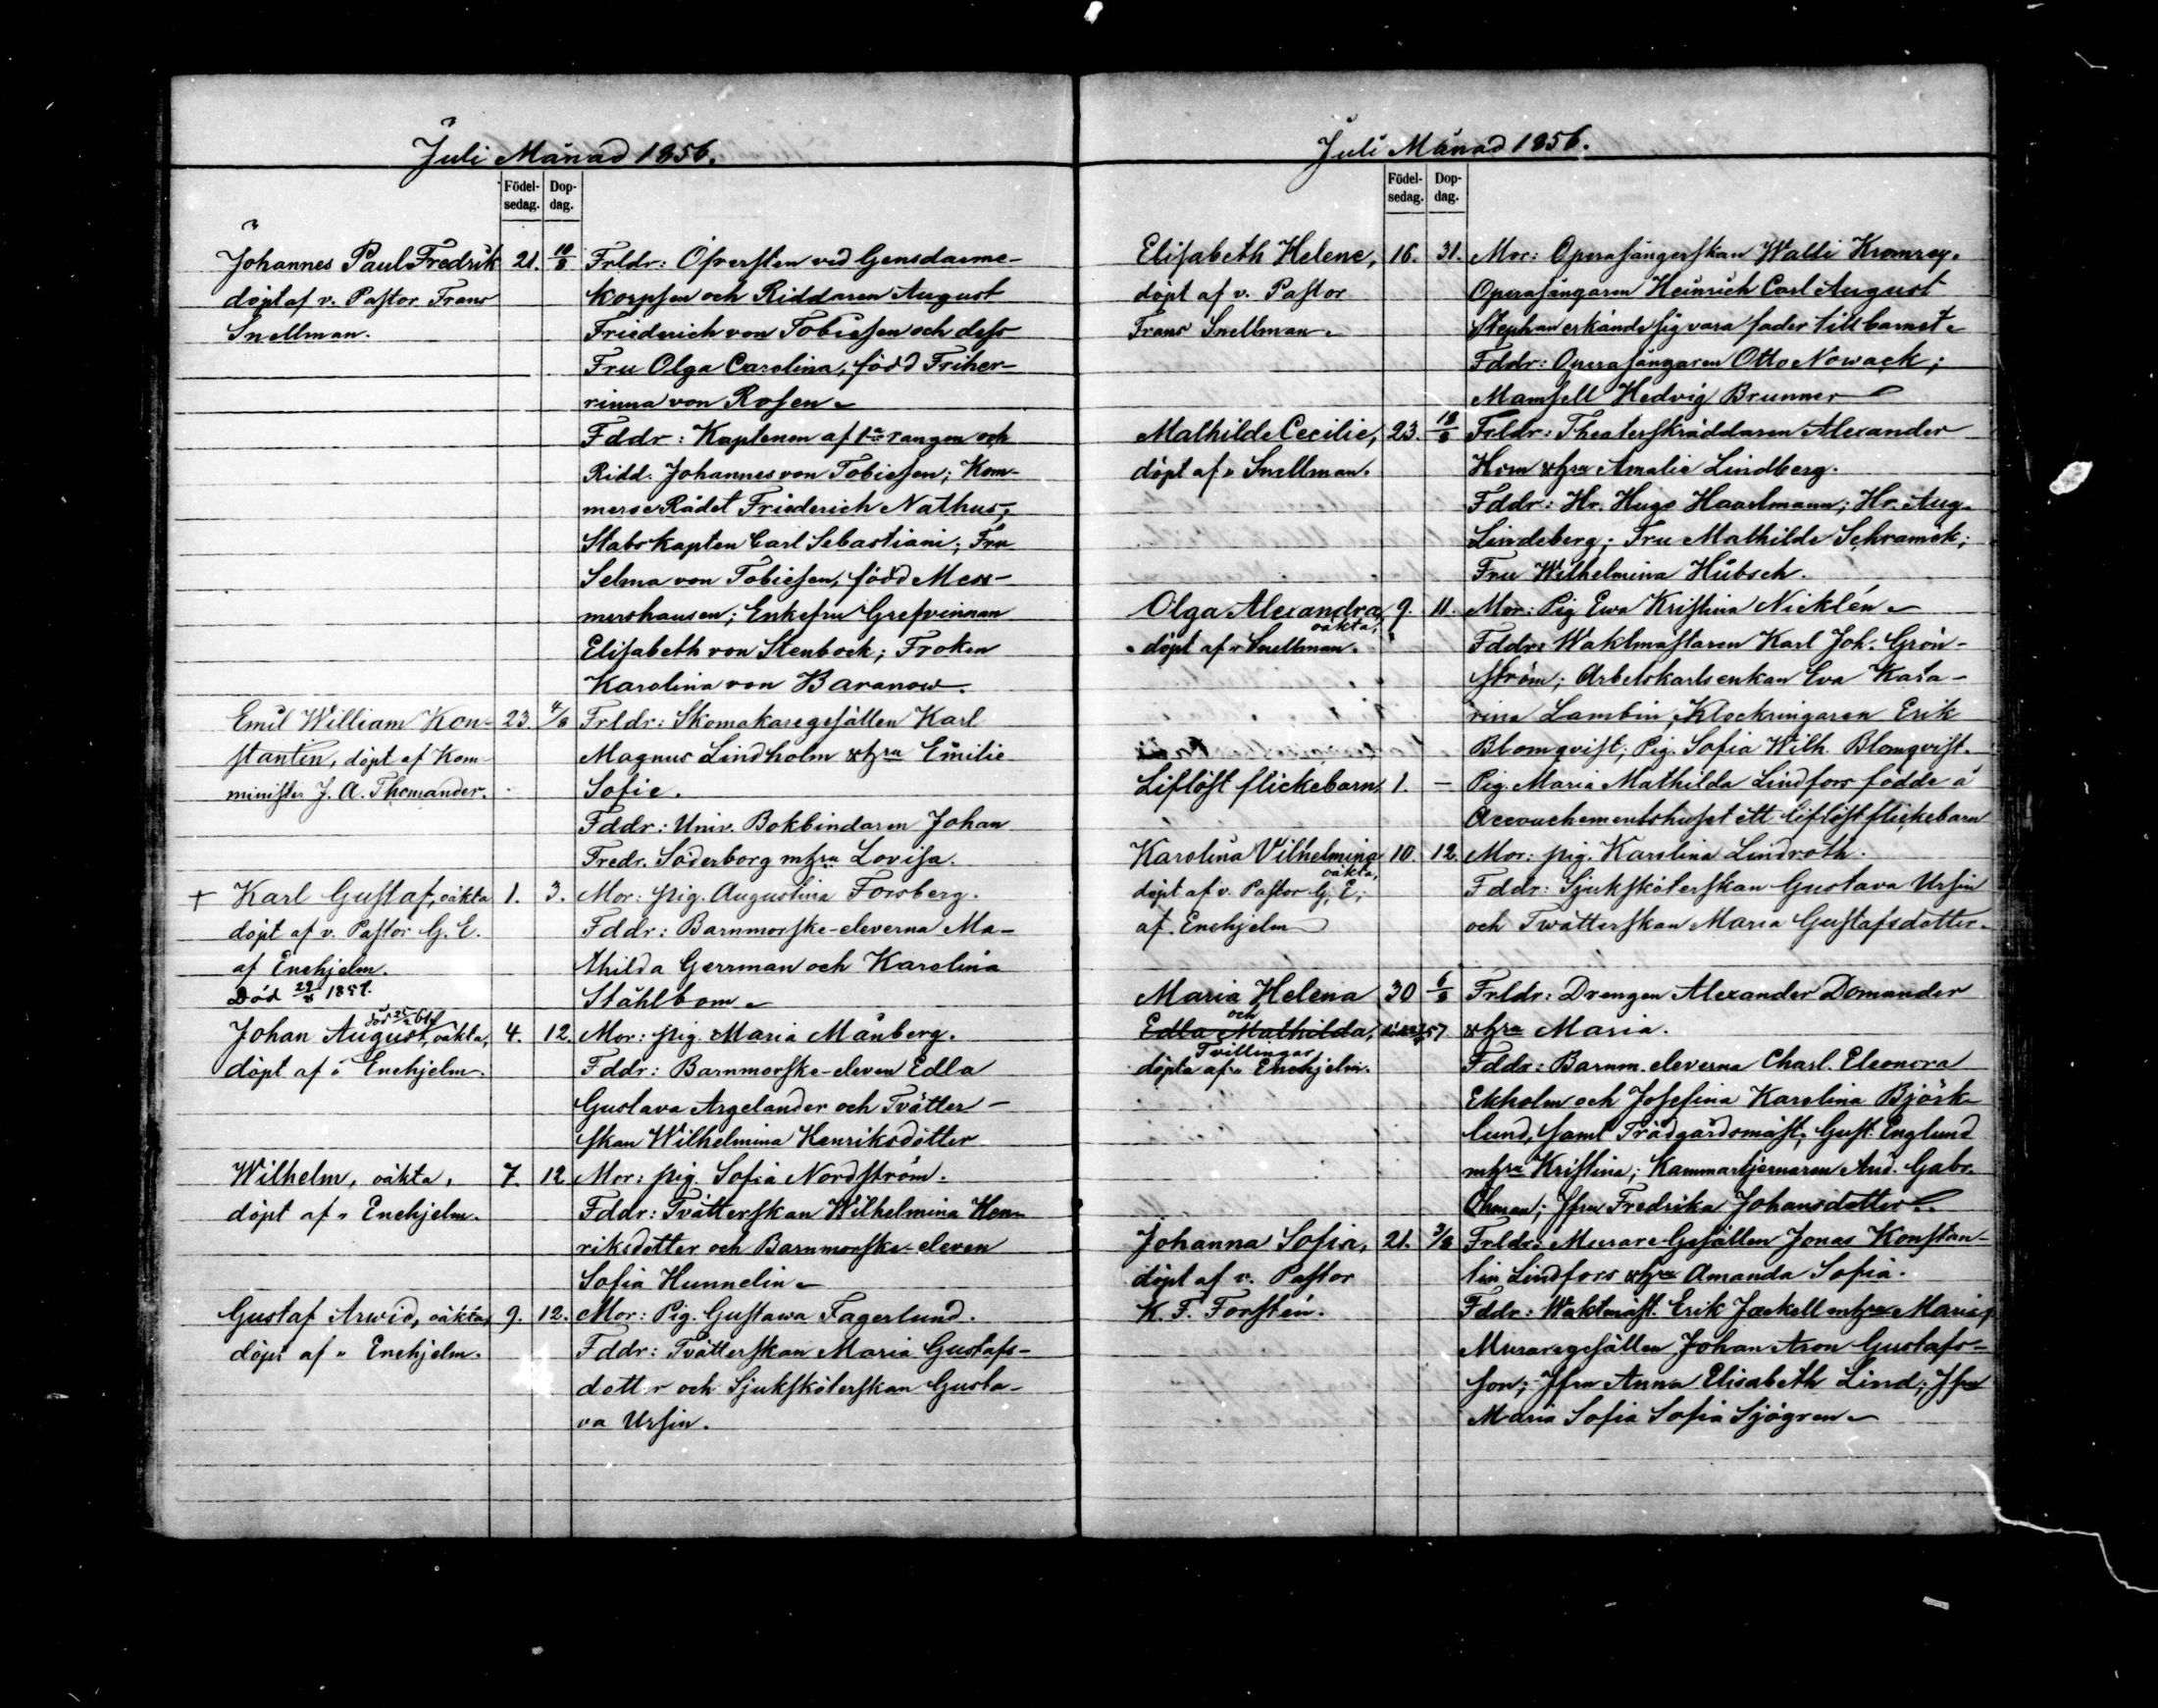 Juli Månad 1856.
Födel-sedag. Dop-dag.
Johannes Paul Fredrik 21. 10/8 Frldr: Öfversten vid Gensdarme-
döpt af v. Pastor Frans korpsen och Riddaren August
Snellman. Friederich von Tobiesen och dess
Fru Olga Carolina, född Friher-
rinna von Rosen
Fddr: Kaptenen af 1a rangen och
Ridd. Johannes von Tobiesen; Kom-
merse Rådet Friederich Nathus;
Stabskapten Carl Sebastiani; Fru
Selma von Tobiesen, född
mershausen; Enkefru Grefvinnan
Elisabeth von Stenbock; Fröken
Karolina von Baranow.
Emil William Kon- 23. 4/8 Frldr: Skomakaregesällen Karl
stantin, döpt af Kom- Magnus Lindholm o hru Emilie
minister J. A. Thomander. Sofie.
Fddr: Univ. Bokbindaren Johan
Fredr. Söderborg m hru Lovisa.
+ Karl Gustaf, oäkta 1. 3. Mor: pig. Augustina Forsberg.
döpt af v. Pastor G. E. Fddr: Barnmorske-eleverna Ma-
af Enehjelm. thilda Gerrman och Karolina
Död 1857. Ståhlbom
Johan August, oäkta, 4. 12. Mor: pig. Maria Månberg.
döpt af " Enehjelm. Fddr: Barnmorske-eleven Edla
Gustava Argelander och Tvätter-
skan Wilhelmina Henriksdotter
Wilhelm, oäkta, 7. 12 Mor: pig. Sofia Nordström.
döpt af " Enehjelm. Fddr: Tvätterskan Wilhelmina Hen-
riksdotter och Barnmorske-eleven
Sofia Hunnelin
Gustaf Arwid, oäkta, 9. 12. Mor: Pig. Gustawa Fagerlund.
döpt af " Enehjelm. Fddr: Tvätterskan Maria Gustafs-
dotter och Sjuksköterskan Gusta-
va Ursin.
Juli Månad 1856.
Födel-sedag. Dop-dag.
Elisabeth Helene, 16. 31. Mor: Operasångerskan Walli Kromrey.
döpt af v. Pastor Operasångaren Heinrich Carl August
Frans Snellman. Stephan erkände sig vara fader till barnet.
Fddr: Operasångaren Otto Nowack;
Mamsell Hedvig Brunner
Mathilde Cecilie, 23. 18/8 Frldr: Theaterskräddaren Alexander
döpt af " Snellman. Horn o hru Amalie Lindberg.
Fddr: Hr. Hugo Haarlmann; Hr. Aug.
Lindeberg; Fru Mathilde Schramek;
Fru Wilhelmina Hübsch.
Olga Alexandra, 9. 11. Mor: Pig Ewa Kristina Nicklén
oäkta,
döpt af " Snellman. Fddr: Waktmästaren Karl Joh. Grön-
ström; Arbetskarlsenkan Eva Kata-
rina Lambin, Klockringaren Erik
Blomqvist; Pig. Sofia Wilh. Blomqvist.
Liflöst flickebarn, 1. — Pig. Maria Mathilda Lindfors födde å
Accouchementshuset ett liflöst flickebarn
Karolina Vilhelmina 10. 12. Mor: pig. Karolina Lindroth.
oäkta,
döpt af v. Pastor G. E. Fddr: Sjuksköterskan Gustava Ursin
af Enehjelm och Twätterskan Maria Gustafsdotter.
Maria Helena 30 6/8 Frldr: Drengen Alexander Domander
och
Edla Mathilda, 57 o hru Maria.
Tvillingar
döpta af " Enehjelm. Fddr: Barnm. eleverna Charl. Eleonora
Ekholm och Josefina Karolina Björk-
lund, samt Trädgårdsmäst. Gust. Englund
m hru Kristina; Kammartjenaren And. Gabr.
Öhman; Jfru Fredrika Johansdotter.
Johanna Sofia, 21. 3/8 Frldr: Murare-Gesällen Jonas Konstan-
döpt af v. Pastor tin Lindfors o hru Amanda Sofia.
K. F. Forstén. Fddr: Waktmäst. Erik Jackell m hru Maria;
Muraregesällen Johan Aron Gustafs-
son; Jfru Anna Elisabeth Lind; Jfru
Maria Sofia Sofia Sjögren